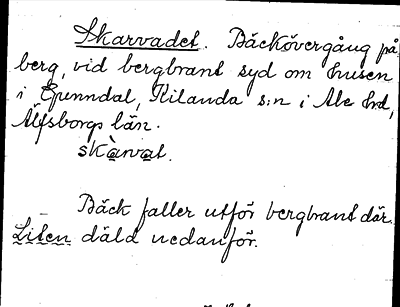 Skarvadet. Bäckövergång på
berg, vid bergbrant syd om husen
i Grunndal, Kilanda s:n i Ale hd,
Älfsborgs län.
skàrvat.
Bäck faller utför bergbrant där.
Liten däld nedanför.